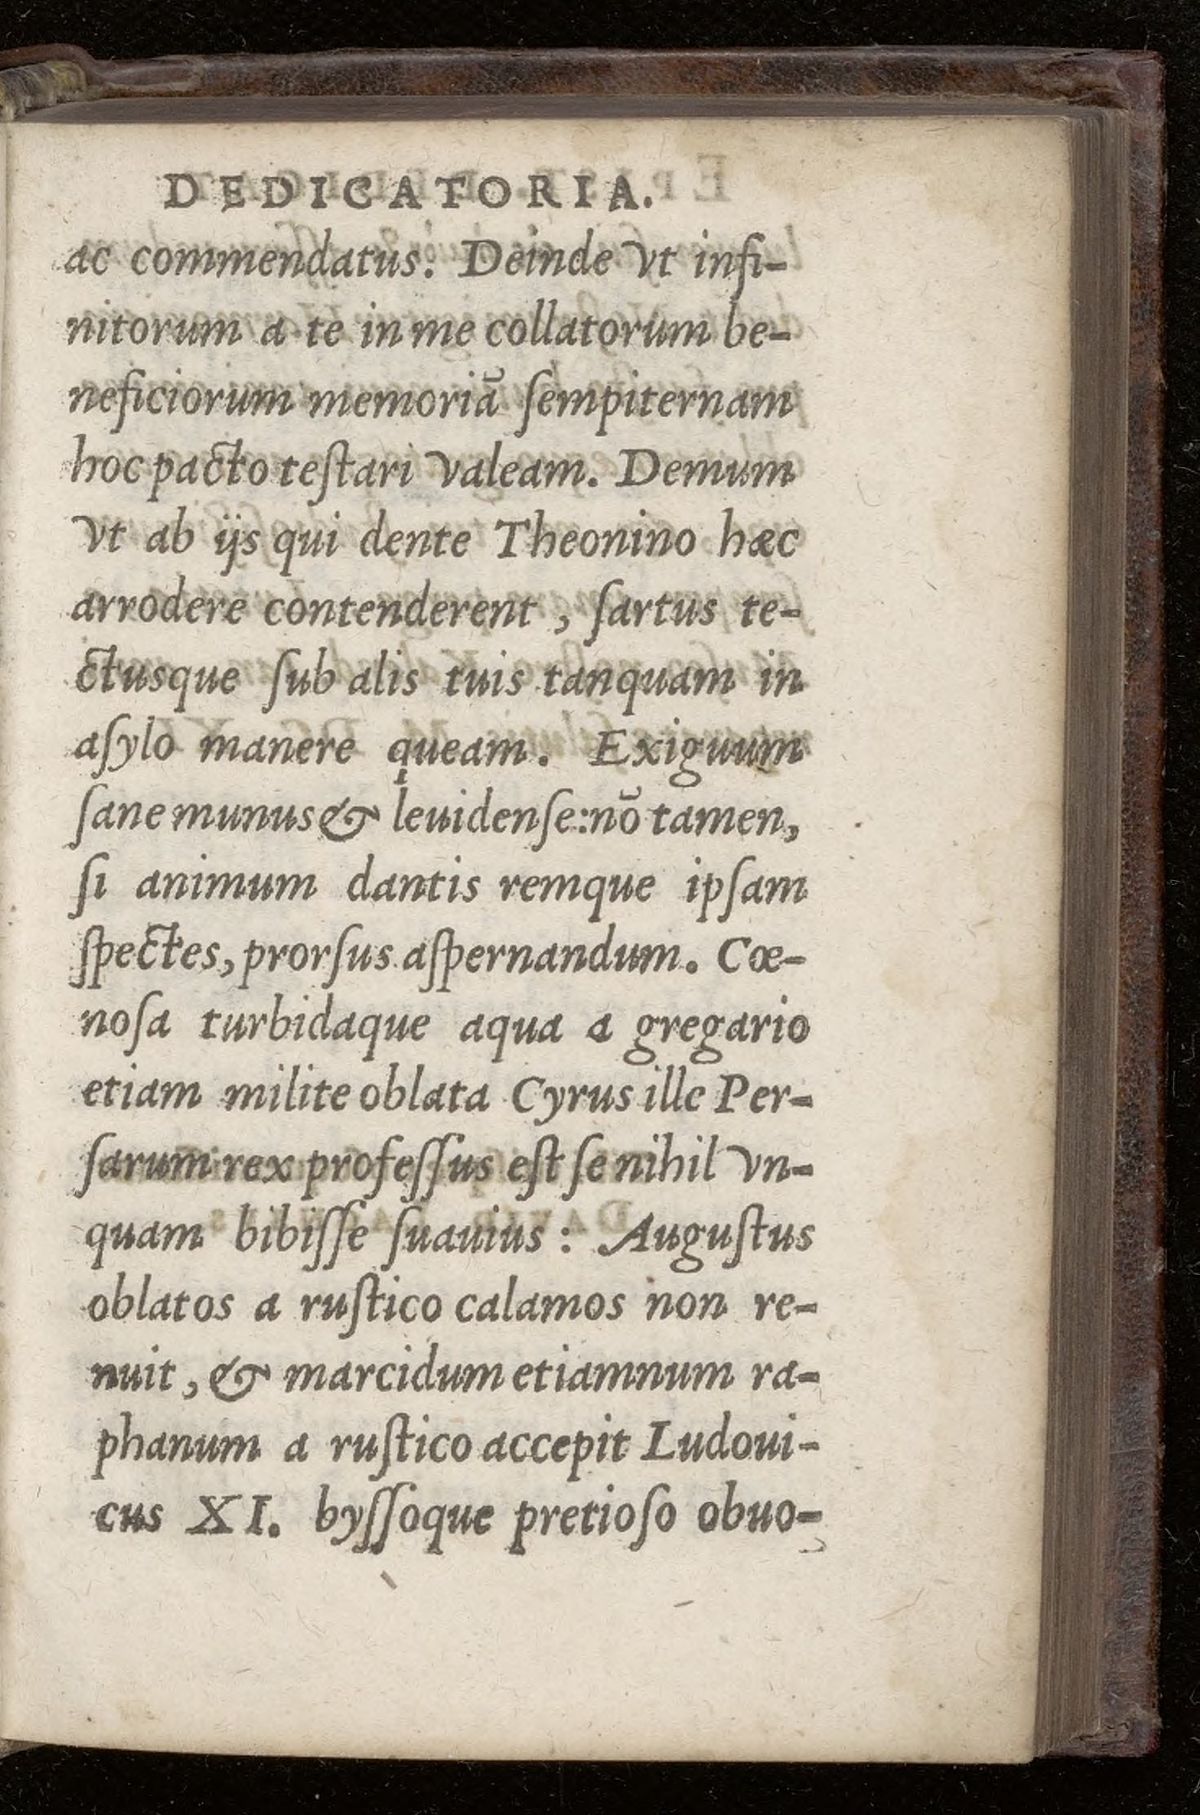 DEDICATORIA.
ac commendatus. Deinde vt infi-
nitorum a te in me collatorum be-
neficiorum memoriā ſempiternam
hoc pacto teſtari valeam. Demum
vt ab ijs qui dente Theonino hæc
arrodere contenderent, ſartus te-
ctusque ſub alis tuis tanquam in
aſylo manere queam. Exiguum
ſane munus & leuidenſe: nō tamen,
ſi animum dantis remque ipſam
ſpectes, prorſus aſpernandum. Cœ-
noſa turbidaque aqua a gregario
etiam milite oblata Cyrus ille Per-
ſarum rex profeſſus eſt ſe nihil vn-
quam bibiſſe ſuauius: Auguſtus
oblatos a ruſtico calamos non re-
nuit, & marcidum etiamnum ra-
phanum a ruſtico accepit Ludoui-
cus XI. byſſoque pretioſo obuo-